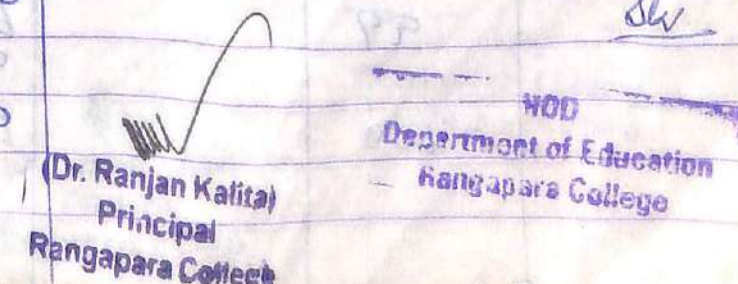 (Dr. Ranjan Kalita)
Principal
Rangapara College
HOD
Department of Education
Rangapara College